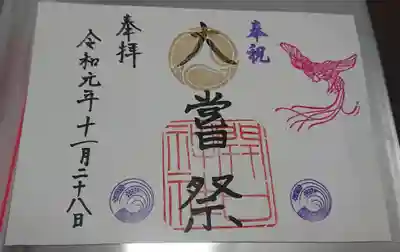 奉祝
大嘗祭
開口神社
奉拝
令和元年十一月二十八日